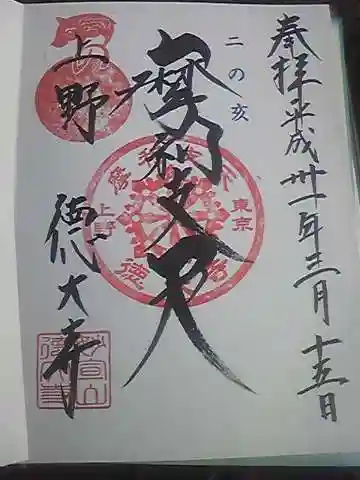 奉拝 平成卅一年三月十五日
二の亥
摩利支天
上野
徳大寺
東京
上野